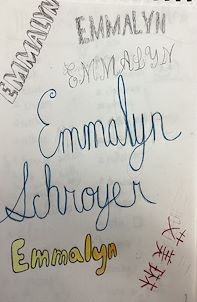 EMMALYN
EMMALYN
EMMALYN
Emmalyn
Schroyer
Emmalyn
艾美琳